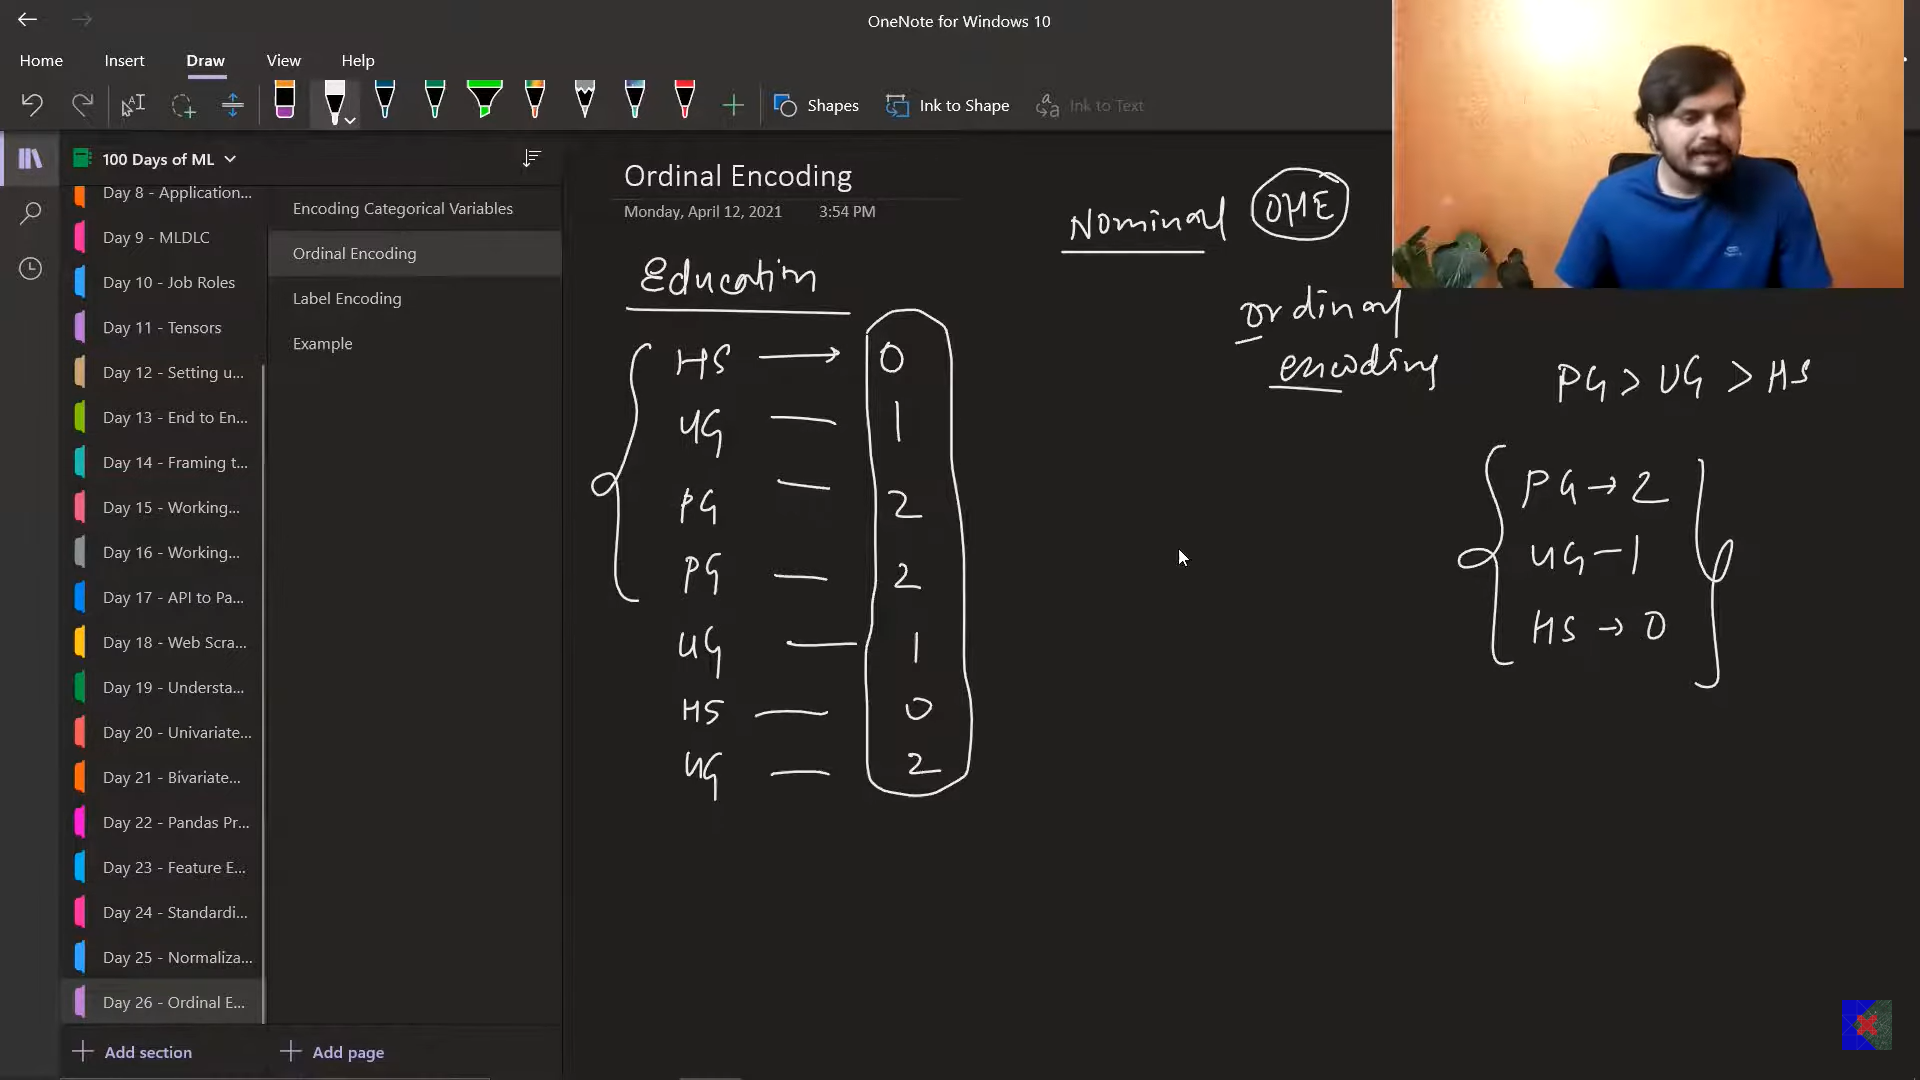 OneNote for Windows 10
Home Insert Draw View Help
Shapes Ink to Shape Ink to Text
100 Days of ML
Day 8 - Application...
Day 9 - MLDLC
Day 10 - Job Roles
Day 11 - Tensors
Day 12 - Setting u...
Day 13 - End to En...
Day 14 - Framing t...
Day 15 - Working...
Day 16 - Working...
Day 17 - API to Pa...
Day 18 - Web Scra...
Day 19 - Understa...
Day 20 - Univariate...
Day 21 - Bivariate...
Day 22 - Pandas Pr...
Day 23 - Feature E...
Day 24 - Standardi...
Day 25 - Normaliza...
Day 26 - Ordinal E...
Add section
Encoding Categorical Variables
Ordinal Encoding
Label Encoding
Example
Add page
Ordinal Encoding
Monday, April 12, 2021 3:54 PM
Education
HS → 0
UG — 1
PG — 2
PG — 2
UG — 1
HS — 0
UG — 2
Nominal OHE
ordinal
encoding
PG > UG > HS
PG → 2
UG — 1
HS → 0